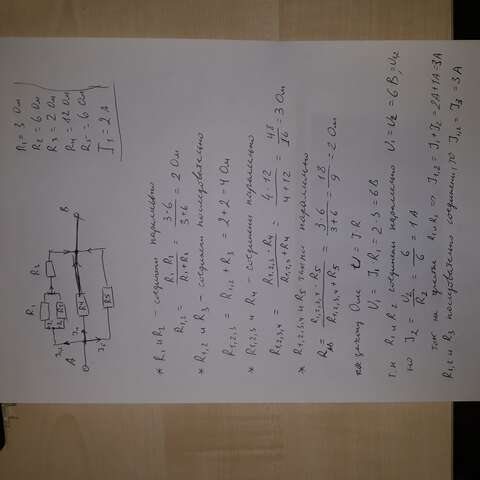 R₁ = 3 Ом
R₂ = 6 Ом
R₃ = 2 Ом
R₄ = 12 Ом
R₅ = 6 Ом
I₁ = 2 А
R₁
R₂
A
B
R₃
R₄
R₅
* R₁ и R₂ - соединены параллельно
R₁,₂ = R₁·R₂ / R₁+R₂ = 3·6 / 3+6 = 2 Ом
* R₁,₂ и R₃ - соединены последовательно
R₁,₂,₃ = R₁,₂ + R₃ = 2+2 = 4 Ом
* R₁,₂,₃ и R₄ - соединены параллельно
R₁,₂,₃,₄ = R₁,₂,₃ · R₄ / R₁,₂,₃ + R₄ = 4·12 / 4+12 = 48 / 16 = 3 Ом
* R₁,₂,₃,₄ и R₅ параллельно
R = R₁,₂,₃,₄ · R₅ / R₁,₂,₃,₄ + R₅ = 3·6 / 3+6 = 18 / 9 = 2 Ом
по закону Ома U = IR
U₁ = I₁R₁ = 2·3 = 6 В
т.к R₁ и R₂ соединены параллельно U₁ = U₂ = 6 В = U₁₂
I₂ = U₂ / R₂ = 6 / 6 = 1 А
ток на R₁ и R₂ => I₁,₂ = I₁ + I₂ = 2А + 1А = 3А
R₁,₂ и R₃ последовательно соединены, то I₁,₂ = I₃ = 3 А